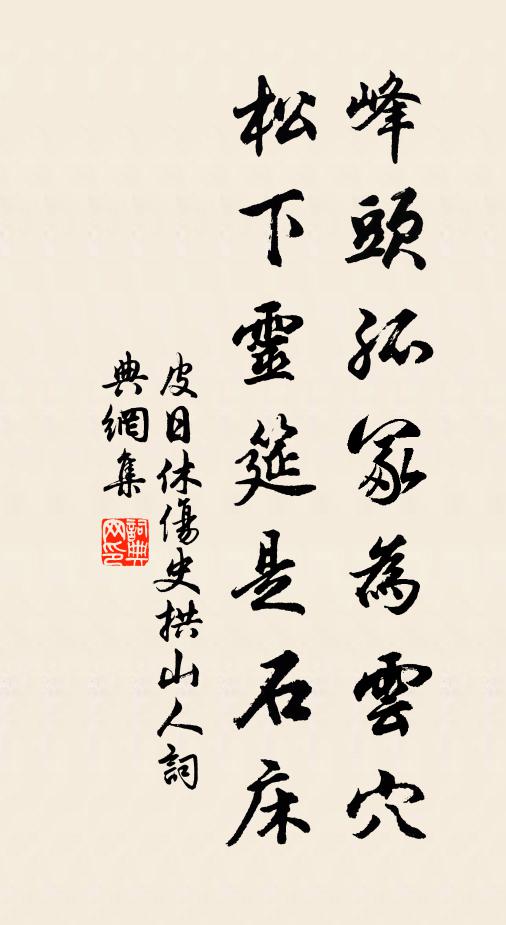 峰頭孤冢為雲穴
松下靈筵是石床
皮日休傷史拱山人詞
典網集
詞典网印